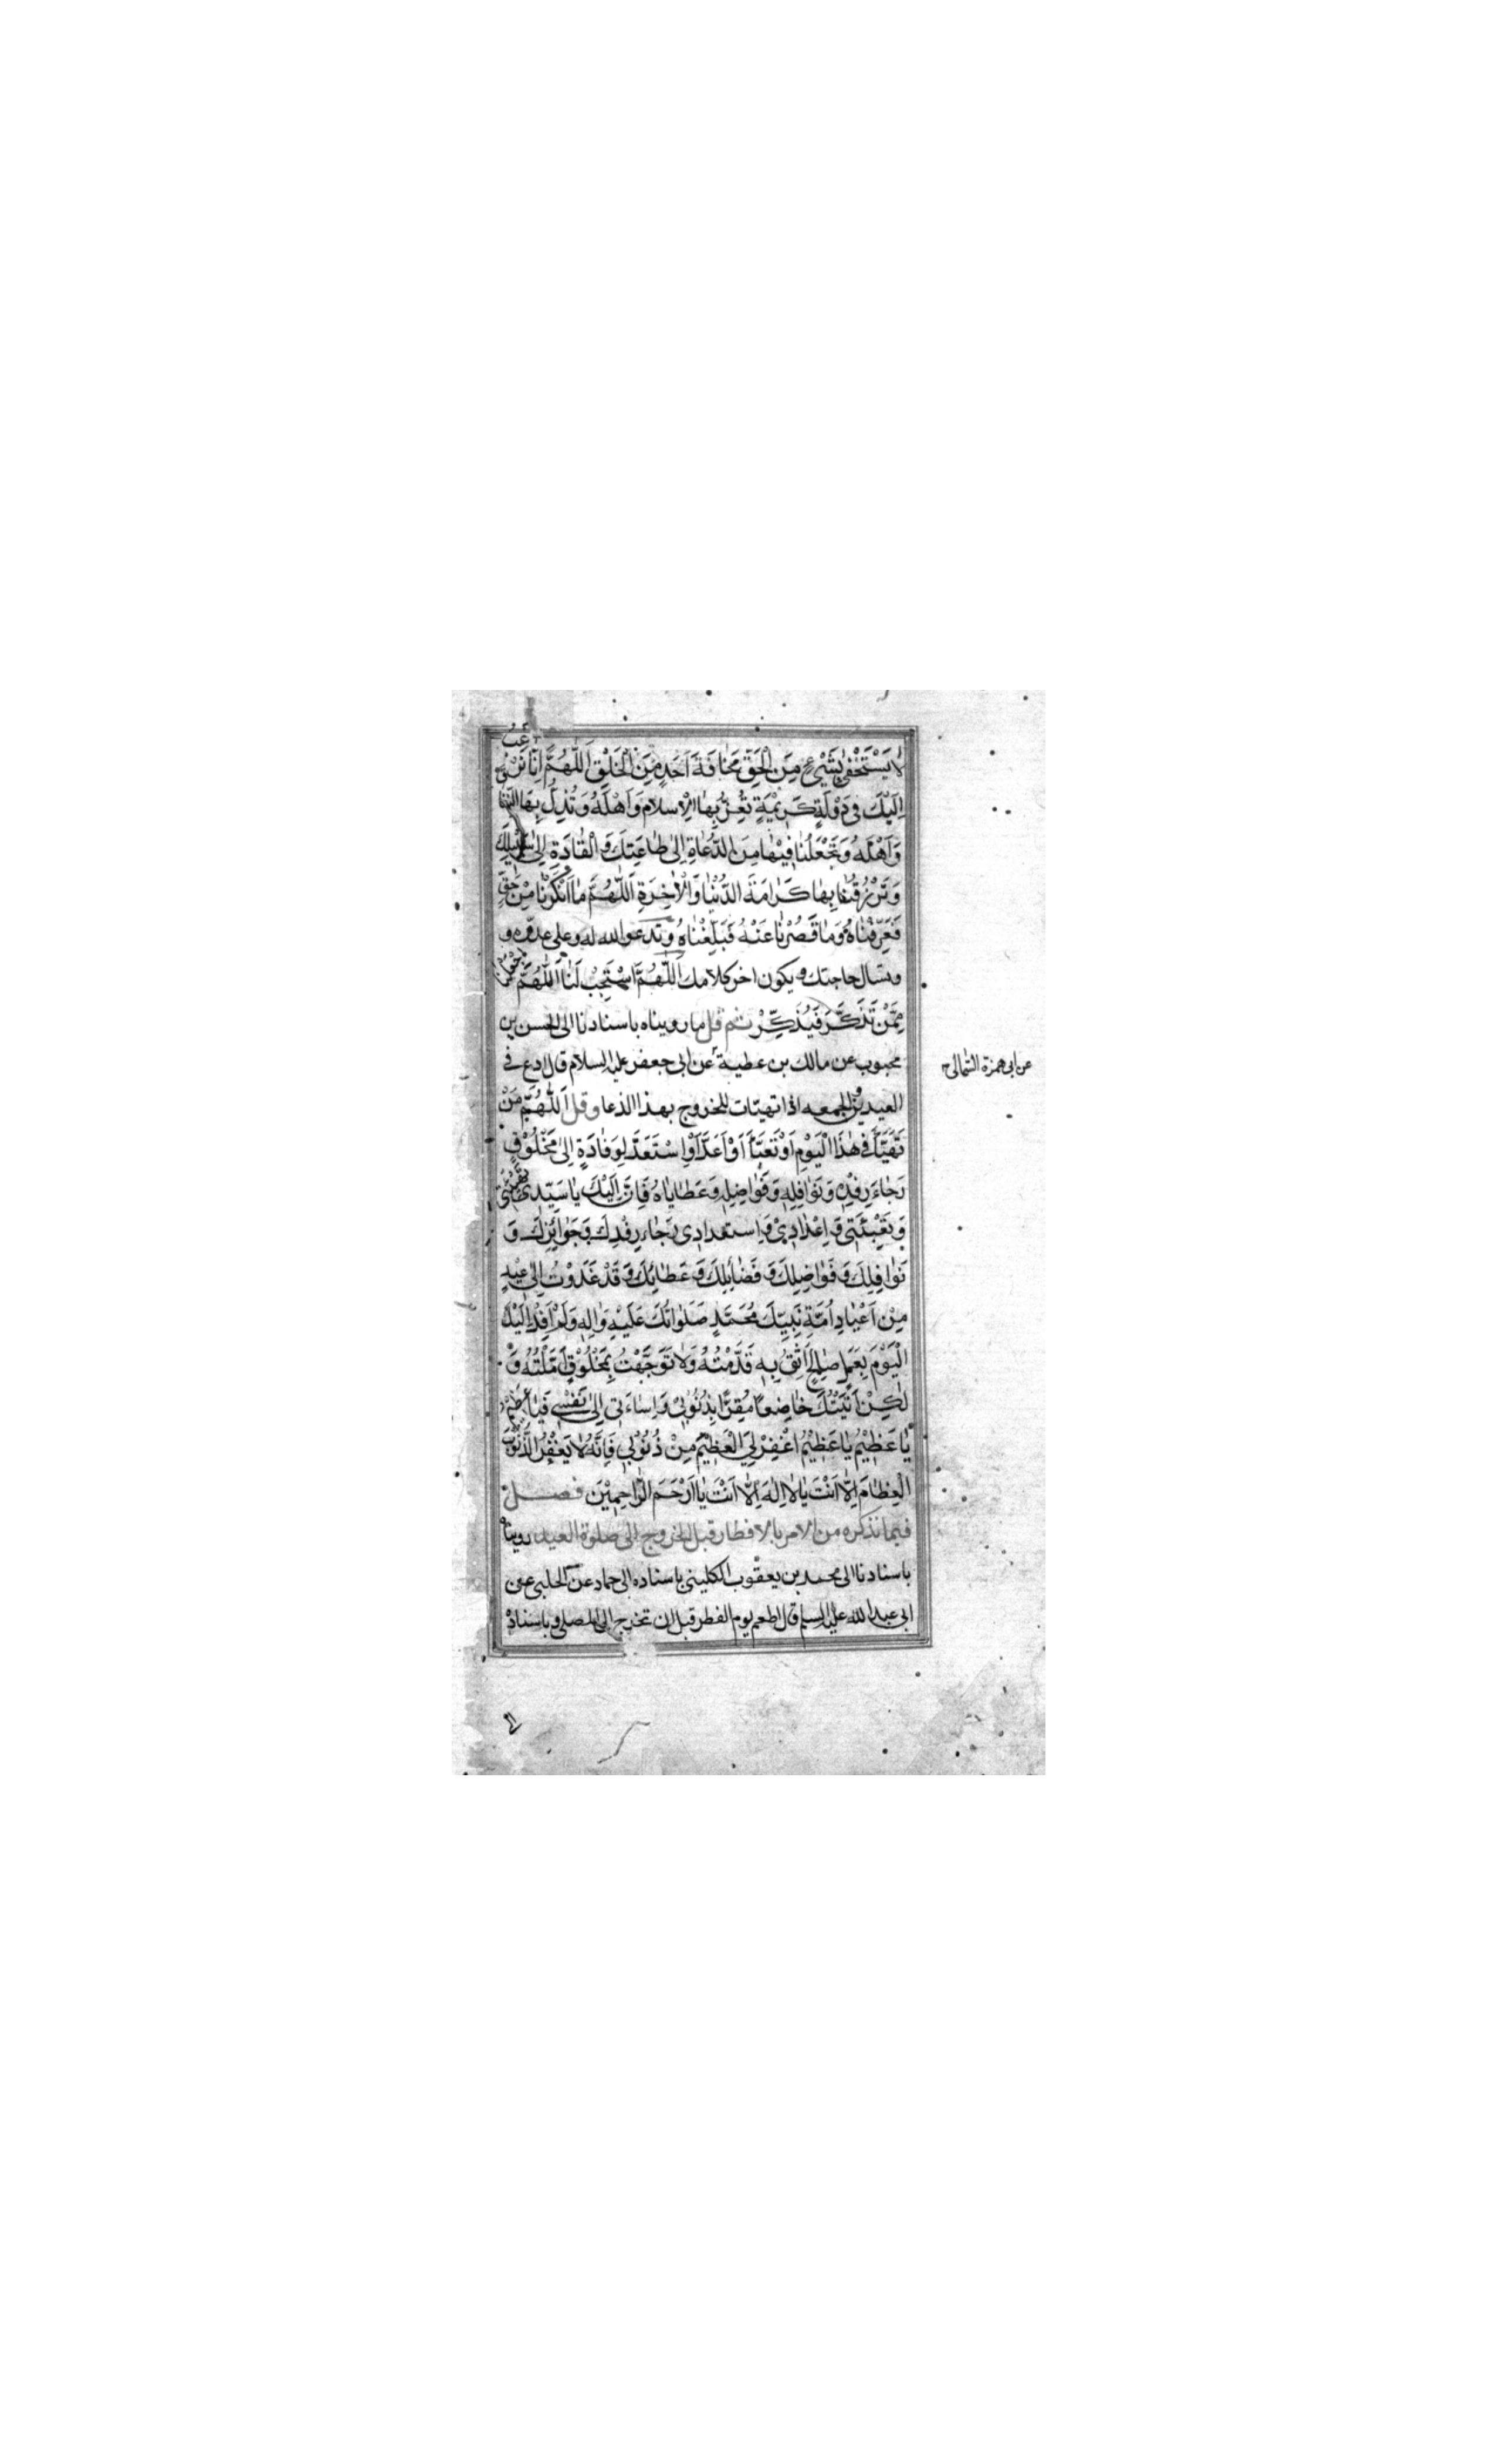 لَا يَسْتَخْفِيَ بِشَيْءٍ مِنَ الْحَقِّ مَخَافَةَ اَحَدٍ مِنَ الْخَلْقِ اَللّٰهُمَّ اِنَّا نَرْغَبُ
اِلَيْكَ فِي دَوْلَةٍ كَرِيْمَةٍ تُعِزُّ بِهَا الْاِسْلَامَ وَاَهْلَهُ وَتُذِلُّ بِهَا النِّفَاقَ
وَاَهْلَهُ وَتَجْعَلُنَا فِيْهَا مِنَ الدُّعَاةِ اِلٰى طَاعَتِكَ وَالْقَادَةِ اِلٰى سَبِيْلِكَ
وَتَرْزُقُنَا بِهَا كَرَامَةَ الدُّنْيَا وَالْاٰخِرَةِ اَللّٰهُمَّ مَا اَنْكَرْنَا مِنْ حَقٍّ
فَعَرِّفْنَاهُ وَمَا قَصُرْنَا عَنْهُ فَبَلِّغْنَاهُ وتدعو الله له وعلى عدوه و
وتسال حاجتك ويكون اخر كلامك اَللّٰهُمَّ اسْتَجِبْ لَنَا اَللّٰهُمَّ اجْعَلْنَا
مِمَّنْ تَذَكَّرَ فَيُذَكِّرْ ثم قل ما رويناه باسنادنا الى الحسن بن
محبوب عن مالك بن عطية عن ابى جعفر عليه السلام قال ادع فى
عن ابى حمزة الثمالى
العيدين والجمعه اذا تهيّات للخروج بهذا الدعا وقل اَللّٰهُمَّ مَنْ
تَهَيَّأَ فِي هٰذَا الْيَوْمِ اَوْ تَعَبَّأَ اَوْ اَعَدَّ اَوِ اسْتَعَدَّ لِوِفَادَةٍ اِلٰى مَخْلُوْقٍ
رَجَاءَ رِفْدِهِ وَنَوَافِلِهِ وَفَوَاضِلِهِ وَعَطَايَاهُ فَاِنَّ اِلَيْكَ يَا سَيِّدِى تَهْيِئَتِى
وَتَعْبِئَتِى وَاِعْدَادِىْ وَاسْتِعْدَادِى رَجَاءَ رِفْدِكَ وَجَوَائِزِكَ وَ
نَوَافِلِكَ وَفَوَاضِلِكَ وَفَضَائِلِكَ وَعَطَائِكَ وَقَدْ غَدَوْتُ اِلٰى عِيْدٍ
مِنْ اَعْيَادِ اُمَّةِ نَبِيِّكَ مُحَمَّدٍ صَلَوَاتُكَ عَلَيْهِ وَاٰلِهِ وَلَمْ اَفِدْ اِلَيْكَ
الْيَوْمَ بِعَمَلٍ صَالِحٍ اَثِقُ بِهِ قَدَّمْتُهُ وَلَا تَوَجَّهْتُ بِمَخْلُوْقٍ اَمَّلْتُهُ وَ
لٰكِنْ اَتَيْتُكَ خَاضِعًا مُقِرًّا بِذُنُوْبِىْ وَاِسَاءَتِى اِلٰى نَفْسِى فَيَا عَظِيْمُ
يَا عَظِيْمُ يَا عَظِيْمُ اغْفِرْ لِيَ الْعَظِيْمَ مِنْ ذُنُوْبِى فَاِنَّهُ لَا يَغْفِرُ الذُّنُوْبَ
الْعِظَامَ اِلَّا اَنْتَ يَا لَا اِلٰهَ اِلَّا اَنْتَ يَا اَرْحَمَ الرَّاحِمِيْنَ فصل
فيما نذكره من الامر بالافطار قبل الخروج الى صلوة العيد رويناه
باسنادنا الى محمد بن يعقوب الكلينى باسناده الى حماد عن الحلبى عن
ابى عبد الله عليه السلم قال اطعم يوم الفطر قبل ان تخرج الى المصلى وباسناده